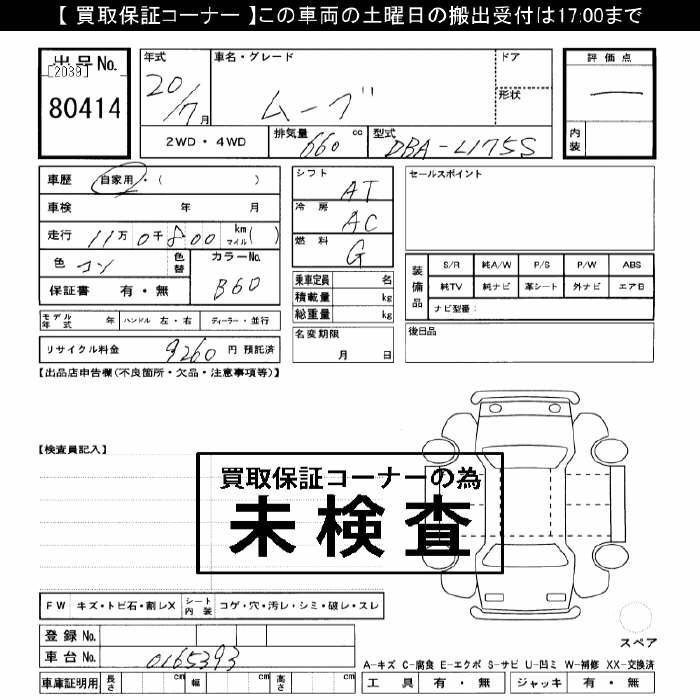 【 買取保証コーナー 】この車両の土曜日の搬出受付は17:00まで
出品No.
[2039]
80414
年式
20/7月
車名・グレード
ムーブ
ドア
形状
評価点
―
内装
2WD・4WD
排気量 660 cc
型式 DBA-L175S
車歴 自家用・( )
車検 年 月
走行 11万0千800 km マイル( )
色 コン
色替
カラーNo. B60
保証書 有・無
シフト AT
冷房 AC
燃料 G
セールスポイント
乗車定員 名
積載量 kg
総重量 kg
装備品
S/R 純A/W P/S P/W ABS
純TV 純ナビ 革シート 外ナビ エアB
ナビ型番:
モデル年式 年 ハンドル 左・右 ディーラー・並行
名変期限 月 日
後日品
リサイクル料金 9260 円 預託済
【出品店申告欄(不良箇所・欠品・注意事項等)】
【検査員記入】
買取保証コーナーの為
未検査
FW キズ・トビ石・割レX シート内装 コゲ・穴・汚レ・シミ・破レ・スレ
登録No.
車台No. 0165393
車庫証明用 長さ cm 幅 cm 高さ cm
スペア
A-キズ C-腐食 E-エクボ S-サビ U-凹ミ W-補修 XX-交換済
工具 有・無 ジャッキ 有・無